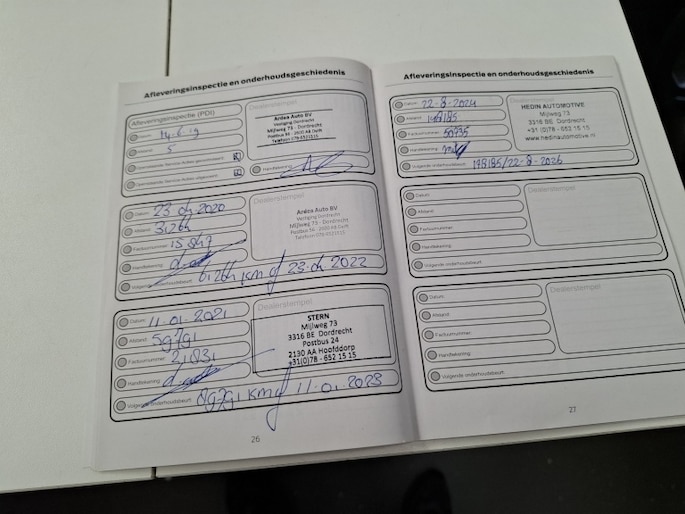 Afleveringsinspectie en onderhoudsgeschiedenis
Afleveringsinspectie (PDI)
Dealerstempel
Datum: 14.6.19
Afstand: 5
Ardea Auto BV
Vestiging Dordrecht
Mijlweg 73 - Dordrecht
Handtekening:
Dealerstempel
Datum: 23 04 2020
Afstand:
Factuurnummer:
Handtekening:
Volgende onderhoudsbeurt: km of 23.04 2022
Ardea Auto BV
Vestiging Dordrecht
Mijlweg 73 - Dordrecht
Dealerstempel
Datum: 11-01-2021
Afstand: 59791
Factuurnummer:
Handtekening:
Volgende onderhoudsbeurt: 89791 km of 11-01 2023
STERN
Mijlweg 73
3316 BE Dordrecht
Postbus 24
2130 AA Hoofddorp
+31(0)78 - 652 15 15
26
Afleveringsinspectie en onderhoudsgeschiedenis
Dealerstempel
Datum: 22-8-2024
Afstand: 148185
Factuurnummer: 50735
Handtekening:
Volgende onderhoudsbeurt: 178185/22-8-2026
HEDIN AUTOMOTIVE
Mijlweg 73
3316 BE Dordrecht
+31 (0)78 - 652 15 15
www.hedinautomotive.nl
Datum:
Afstand:
Factuurnummer:
Handtekening:
Volgende onderhoudsbeurt:
Dealerstempel
Datum:
Afstand:
Factuurnummer:
Handtekening:
Volgende onderhoudsbeurt:
Dealerstempel
27